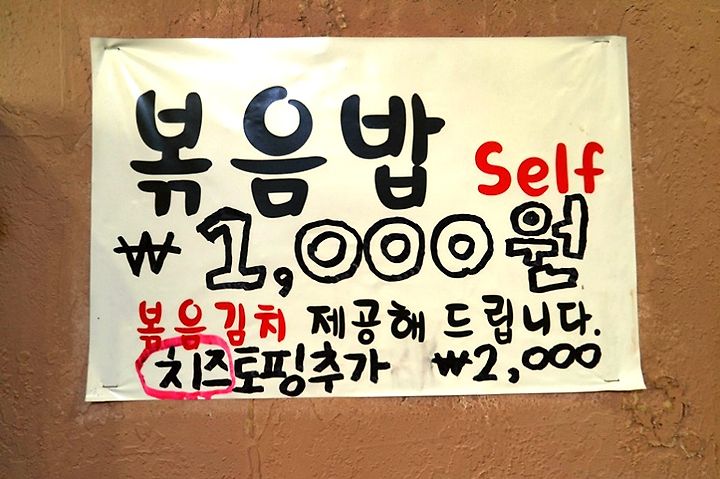 볶음밥 Self
₩1,000원
볶음김치 제공해 드립니다.
치즈토핑추가 ₩2,000